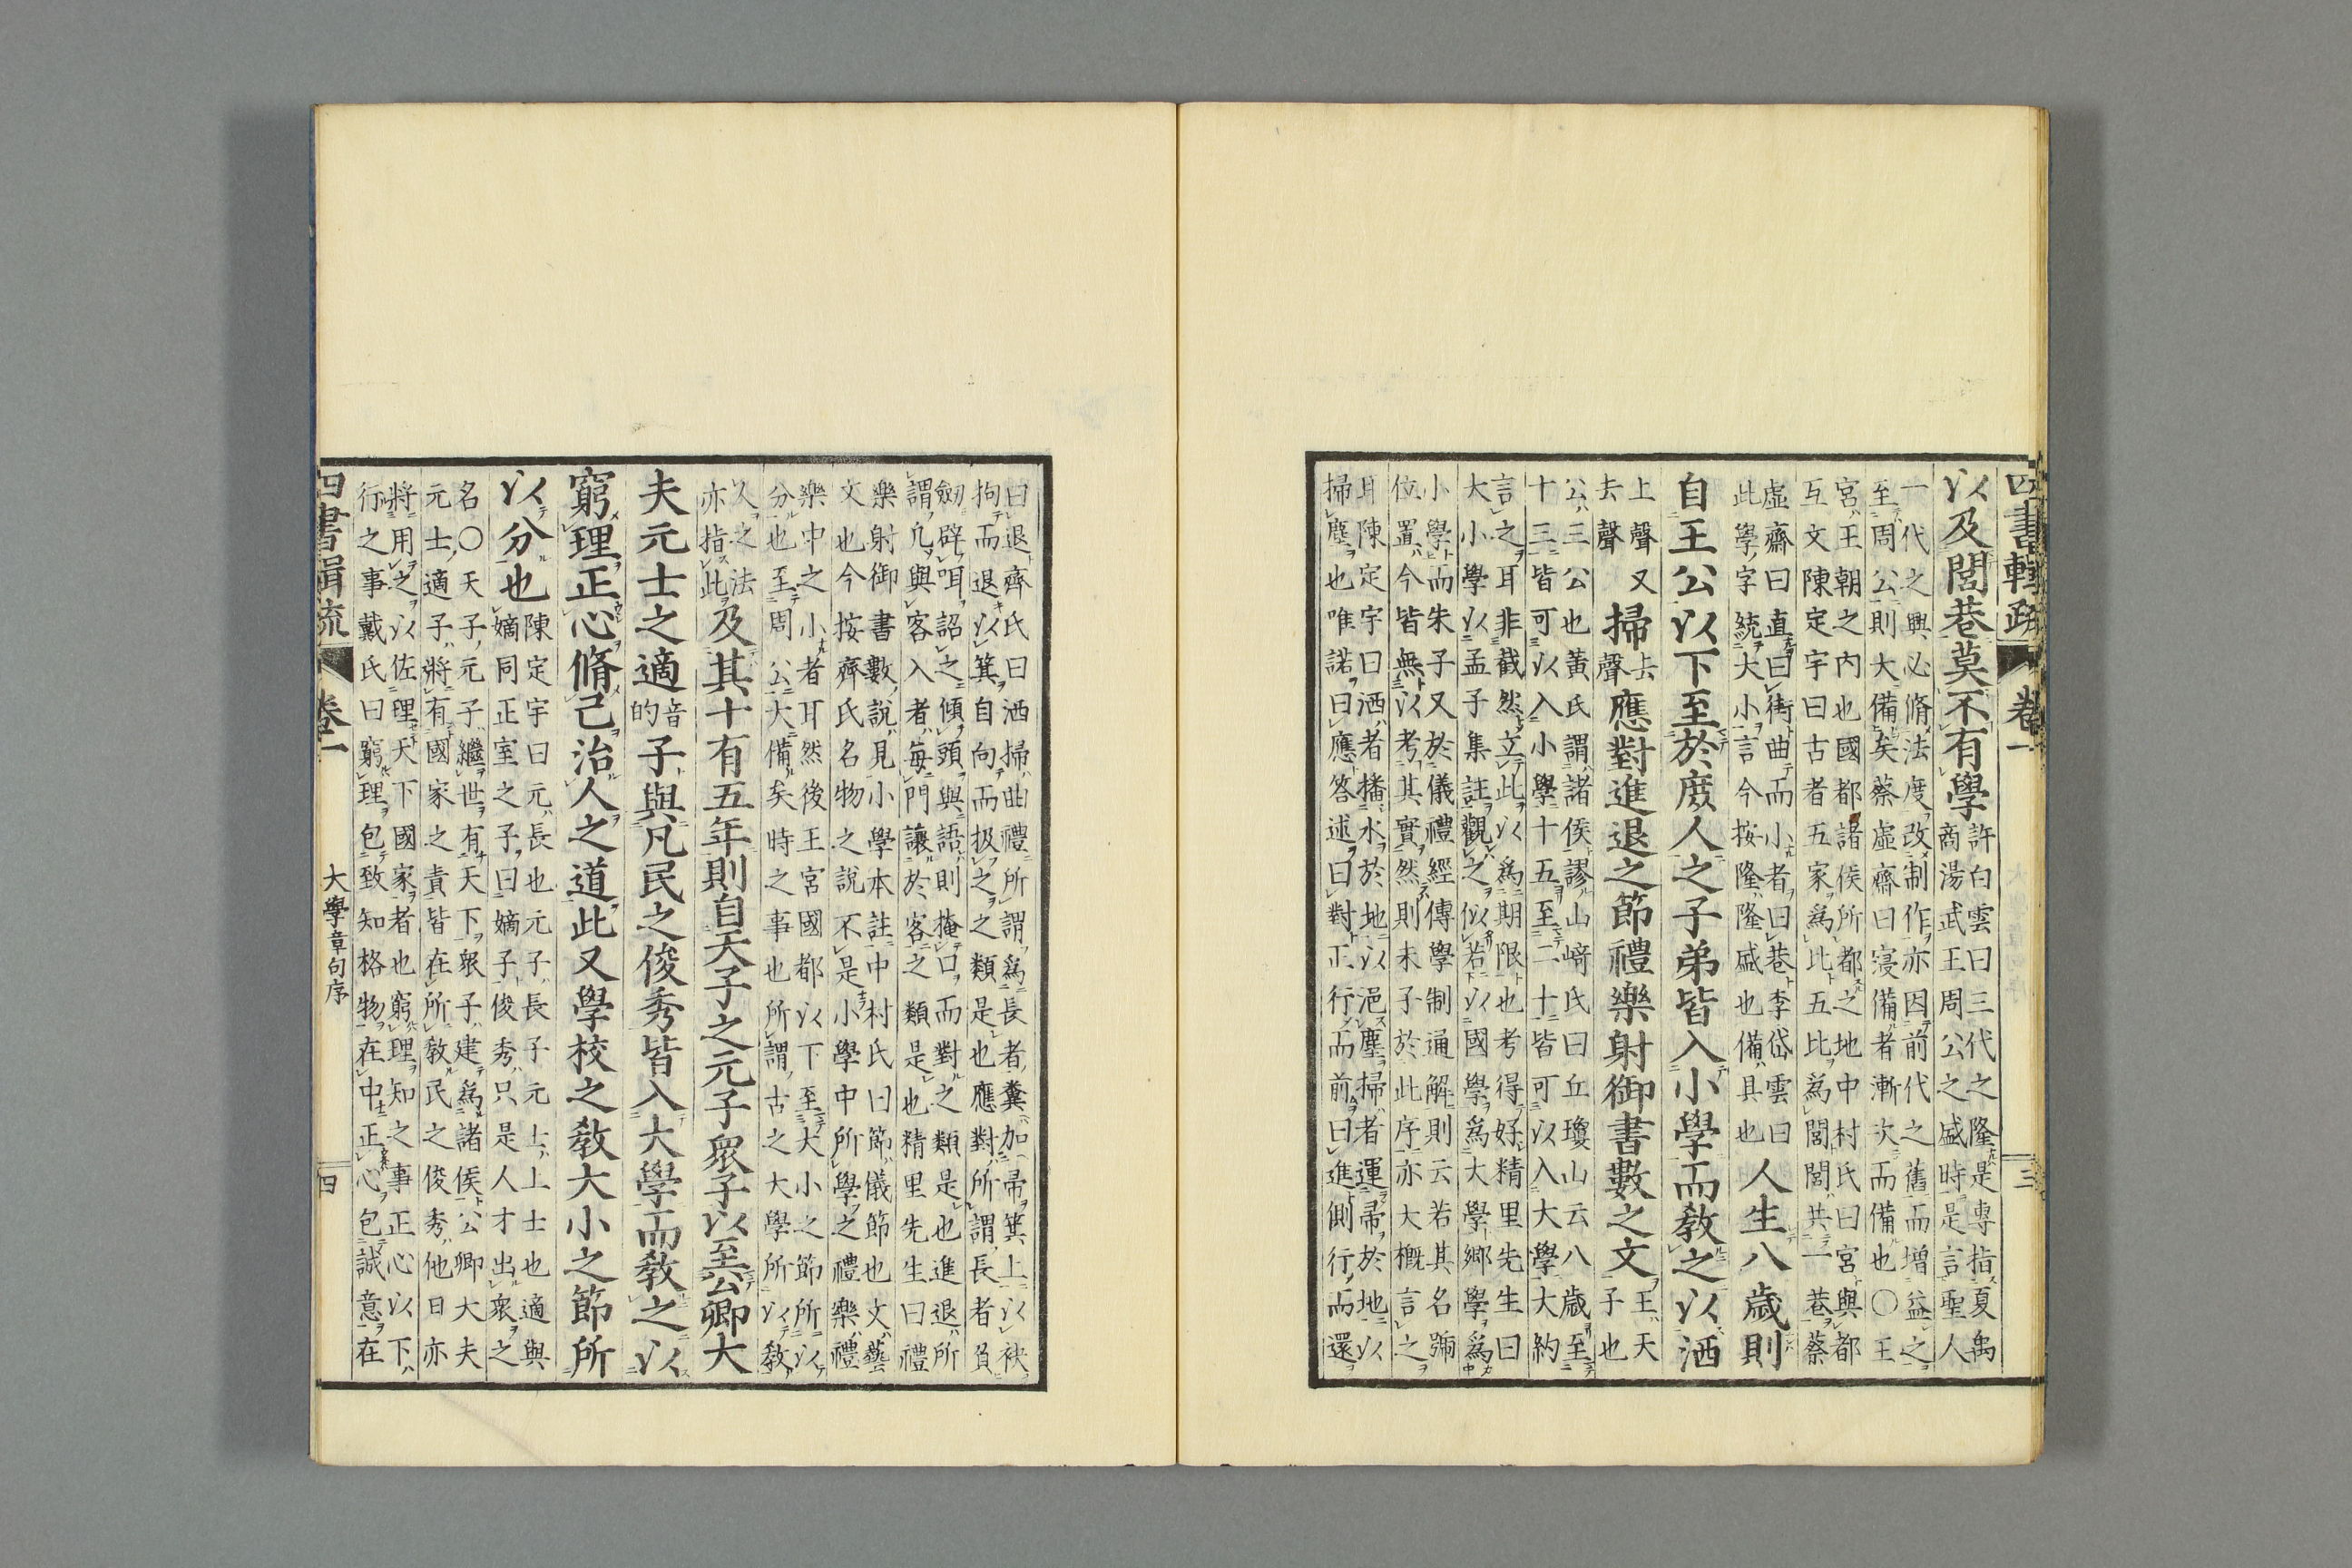 四書輯疏 卷一 三
以及閭巷莫不有學
許白雲曰三代之隆是專指夏禹
商湯武王周公之盛時是言聖人
一代之興必脩法度改制作亦因前代之舊而增益之
至周公則大備矣蔡虛齋曰寖備者漸次而備也〇王
宮王朝之内也國都諸侯所都之地中村氏曰宮與都
互文陳定宇曰古者五家爲比五比爲閭閭共一巷蔡
虛齋曰直曰街曲而小者曰巷李岱雲曰
此學字統大小言今按隆隆盛也備具也
人生八歲則
自王公以下至於庶人之子弟皆入小學而敎之以洒
上聲又
去聲
掃
去
聲
應對進退之節禮樂射御書數之文
王天
子也
公三公也黃氏謂諸侯謬山﨑氏曰丘瓊山云八歲至
十三皆可以入小學十五至二十皆可以入大學大約
言之耳非截然立此以爲期限也考得好精里先生曰
大小學以孟子集註觀之似若以國學爲大學鄉學爲
小學而朱子又於儀禮經傳學制通解則云若其名號
位置今皆無以考其實然則未子於此序亦大概言之
耳陳定宇曰洒者播水於地以浥塵掃者運帚於地以
掃塵也唯諾曰應答述曰對正行而前曰進側行而還
曰退齊氏曰洒掃曲禮所謂爲長者糞加帚箕上以袂
拘而退以箕自向而扱之之類是也應對所謂長者負
劒辟咡詔之傾頭與語則掩口而對之類是也進退所
謂凢與客入者每門讓於客之類是也精里先生曰禮
樂射御書數說見小學本註中村氏曰節儀節也文藝
文也今按齊氏名物之說不是小學中所學之禮樂禮
樂中之小者耳然後王宮國都以下至大小之節所以
分也至周公大備矣時之事也所謂古之大學所以敎
人之法
亦指此
及其十有五年則自天子之元子衆子以至公卿大
夫元士之適
音
的
子與凡民之俊秀皆入大學而敎之以
窮理正心脩己治人之道此又學校之敎大小之節所
以分也
陳定宇曰元長也元子長子元士上士也適與
嫡同正室之子曰嫡子俊秀只是人才出衆之
名〇天子元子繼世有天下衆子建爲諸侯公卿大夫
元士適子將有國家之責皆在所敎民之俊秀他日亦
將用之以佐理天下國家者也窮理知之事正心以下
行之事戴氏曰窮理包致知格物在中正心包誠意在
四書輯疏 卷一 大學章句序 四